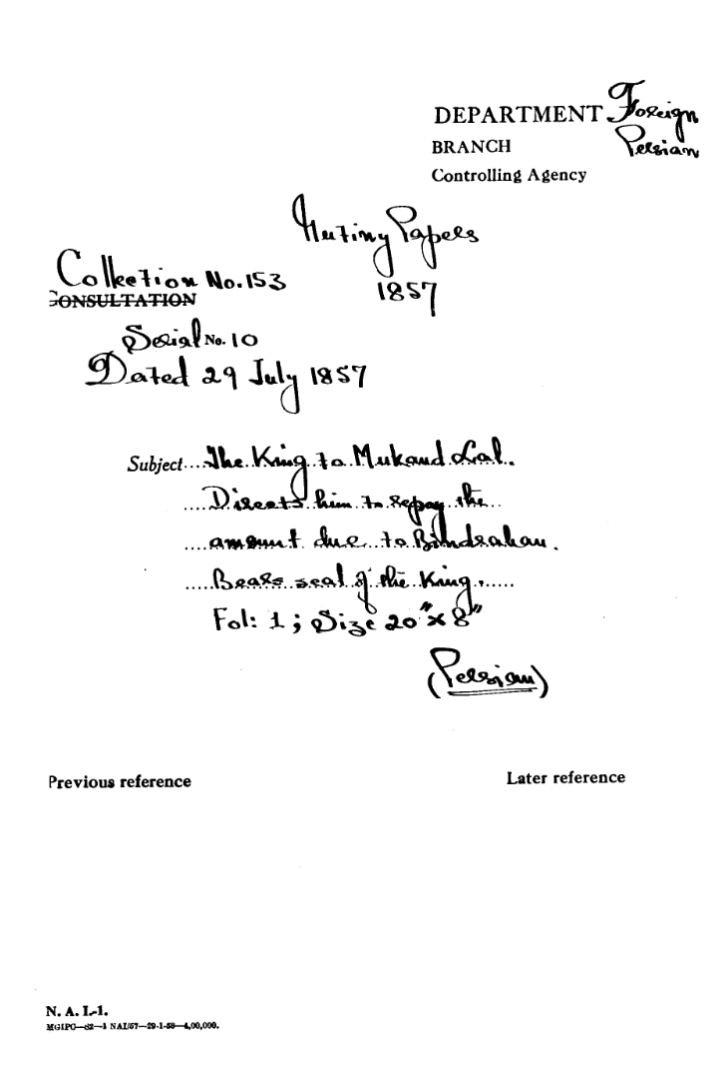 DEPARTMENT Foreign
BRANCH Persian
Controlling Agency
Mutiny Papers
1857
Collection No. 153
CONSULTATION
Serial No. 10
Dated 29 July 1857
Subject.... The King to Mukand Lal.
Directs him to repay the
amount due to Bindraban.
Bears seal of the King.
Fol: 1 ; Size 20" x 8"
(Persian)
Previous reference Later reference
N. A. I.-1.
MGIPC—62—1 NAI/57—29-1-58—4,00,000.